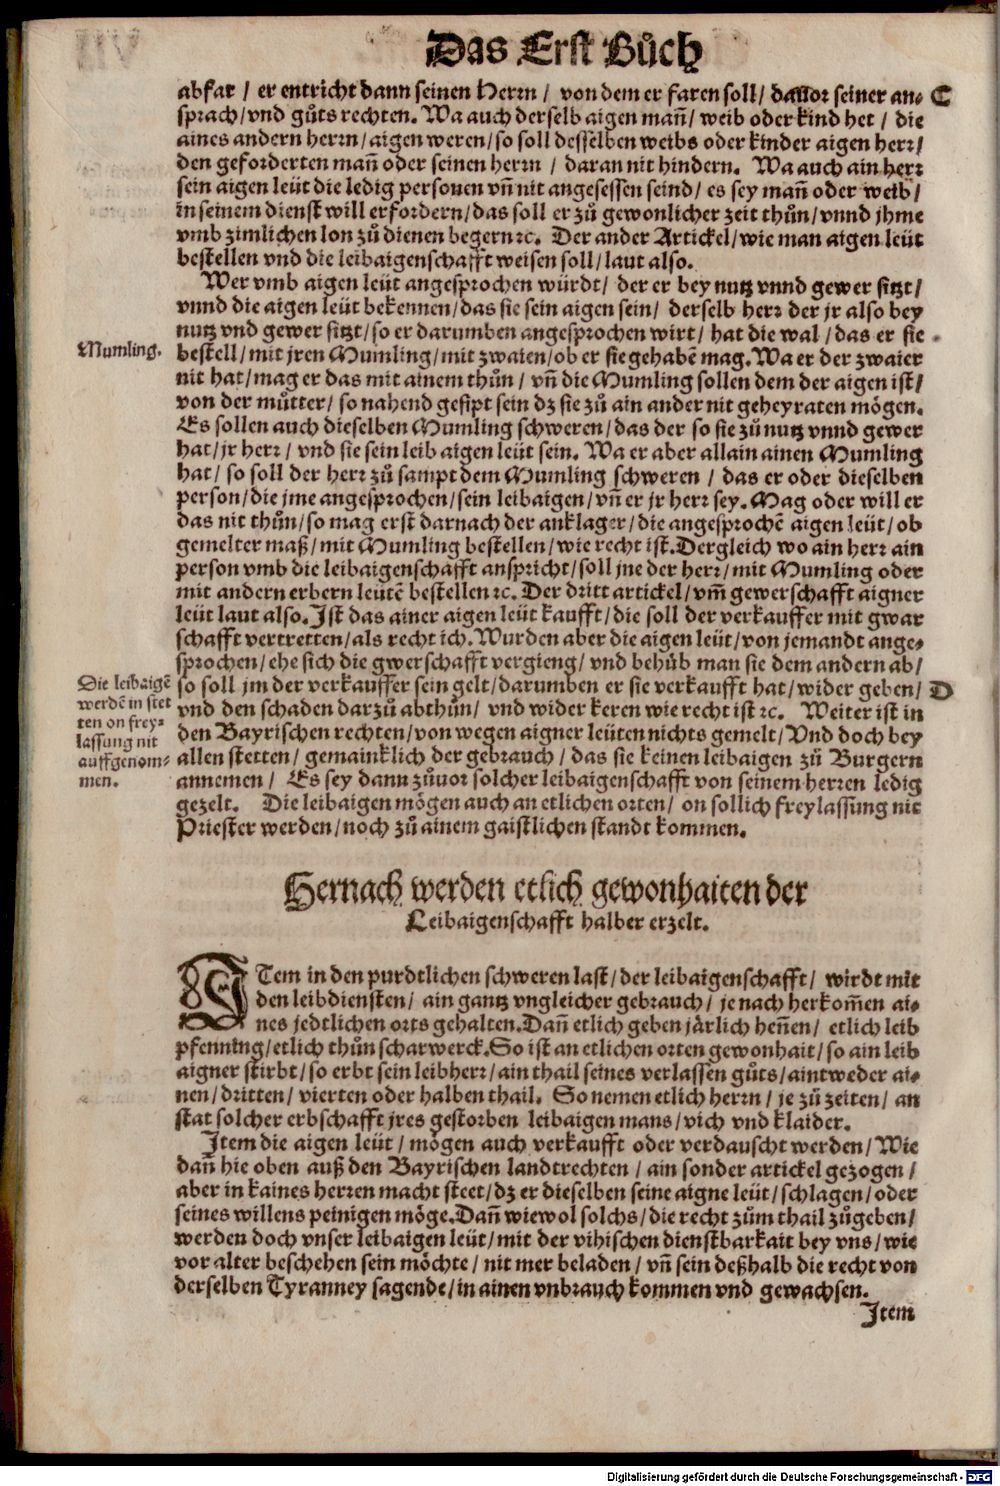 Das Erst Bůch
abfar / er entricht dann seinen Herrn / von dem er faren soll / dauor seiner an⸗ C
sprach / vnd gůts rechten. Wa auch derselb aigen mañ / weib oder kind het / die
aines andern herrn / aigen weren / so soll desselben weibs oder kinder aigen herr /
den geforderten mañ oder seinen herrn / daran nit hindern. Wa auch ain herr
sein aigen leüt die ledig personen vñ nit angesessen seind / es sey mañ oder weib /
in seinem dienst will erfordern / das soll er zů gewonlicher zeit thůn / vnnd jhme
vmb zimlichen lon zů dienen begern ꝛc. Der ander Artickel / wie man aigen leüt
bestellen vnd die leibaigenschafft weisen soll / laut also.
Wer vmb aigen leüt angesprochen würdt / der er bey nutz vnnd gewer sitzt /
vnnd die aigen leüt bekennen / das sie sein aigen sein / derselb herr der jr also bey
nutz vnd gewer sitzt / so er darumben angesprochen wirt / hat die wal / das er sie
Mumling.
bestell / mit jren Mumling / mit zwaien / ob er sie gehabē mag. Wa er der zwaier
nit hat / mag er das mit ainem thůn / vñ die Mumling sollen dem der aigen ist /
von der můtter / so nahend gesipt sein dz sie zů ain ander nit geheyraten mögen.
Es sollen auch dieselben Mumling schweren / das der so sie zů nutz vnnd gewer
hat / jr herr / vnd sie sein leib aigen leüt sein. Wa er aber allain ainen Mumling
hat / so soll der herr zů sampt dem Mumling schweren / das er oder dieselben
person / die jme angesprochen / sein leibaigen / vñ er jr herr sey. Mag oder will er
das nit thůn / so mag erst darnach der anklager / die angesprochē aigen leüt / ob
gemelter maß / mit Mumling bestellen / wie recht ist. Dergleich wo ain herr ain
person vmb die leibaigenschafft anspricht / soll jne der herr / mit Mumling oder
mit andern erbern leütē bestellen ꝛc. Der dritt artickel / vm̃ gewerschafft aigner
leüt laut also. Ist das ainer aigen leüt kaufft / die soll der verkauffer mit gwar
schafft vertretten / als recht ich. Wurden aber die aigen leüt / von jemandt ange⸗
sprochen / ehe sich die gwerschafft vergieng / vnd behüb man sie dem andern ab /
Die leibaigē
werdē in stet
ten on frey⸗
lassung nit
auffgenom⸗
men.
so soll jm der verkauffer sein gelt / darumben er sie verkaufft hat / wider geben / D
vnd den schaden darzů abthůn / vnd wider keren wie recht ist ꝛc. Weiter ist in
den Bayrischen rechten / von wegen aigner leüten nichts gemelt / Vnd doch bey
allen stetten / gemainklich der gebrauch / das sie keinen leibaigen zů Burgern
annemen / Es sey dann zůuor solcher leibaigenschafft von seinem herren ledig
gezelt. Die leibaigen mögen auch an etlichen orten / on sollich freylassung nit
Priester werden / noch zů ainem gaistlichen standt kommen.
Hernach werden etlich gewonhaiten der
Leibaigenschafft halber erzelt.
ITem in den purdtlichen schweren last / der leibaigenschafft / wirdt mit
den leibdiensten / ain gantz vngleicher gebrauch / je nach herkom̃en ai⸗
nes jedtlichen orts gehalten. Dañ etlich geben järlich heñen / etlich leib
pfenning / etlich thůn scharwerck. So ist an etlichen orten gewonhait / so ain leib
aigner stirbt / so erbt sein leibherr / ain thail seines verlassen gůts / aintweder ai⸗
nen / dritten / vierten oder halben thail. So nemen etlich herrn / je zů zeiten / an
stat solcher erbschafft jres gestorben leibaigen mans / vich vnd klaider.
Item die aigen leüt / mögen auch verkaufft oder verdauscht werden / Wie
dañ hie oben auß den Bayrischen landtrechten / ain sonder artickel gezogen /
aber in kaines herren macht steet / dz er dieselben seine aigne leüt / schlagen / oder
seines willens peinigen möge. Dañ wiewol solchs / die recht zům thail zůgeben /
werden doch vnser leibaigen leüt / mit der vihischen dienstbarkait bey vns / wie
vor alter beschehen sein möchte / nit mer beladen / vñ sein deßhalb die recht von
derselben Tyranney sagende / in ainen vnbrauch kommen vnd gewachsen.
Item
Digitalisierung gefördert durch die Deutsche Forschungsgemeinschaft - DFG